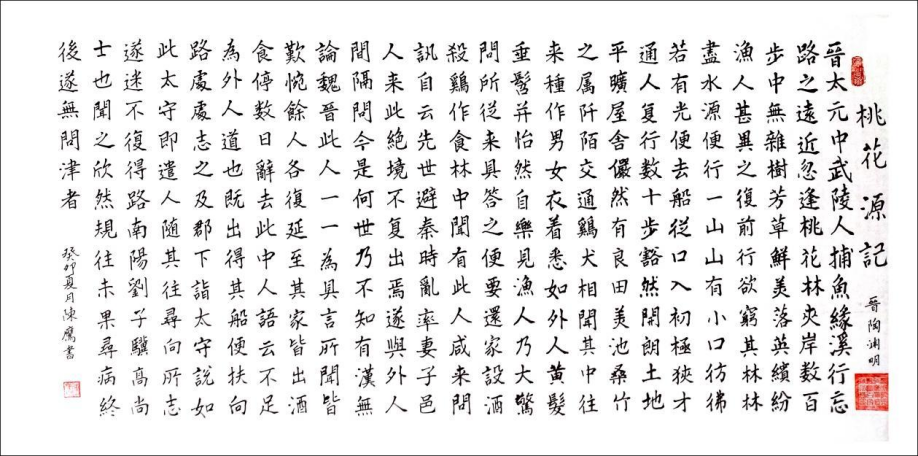 桃花源記
晉陶淵明
晉太元中武陵人捕魚緣溪行忘
路之遠近忽逢桃花林夾岸数百
步中無雜樹芳草鮮美落英繽紛
漁人甚異之復前行欲窮其林林
盡水源便行一山山有小口彷彿
若有光便去船從口入初極狹才
通人复行数十步豁然開朗土地
平曠屋舍儼然有良田美池桑竹
之属阡陌交通鷄犬相聞其中往
来種作男女衣着悉如外人黃髮
垂髫并怡然自樂見漁人乃大驚
問所從来具答之便要還家設酒
殺鷄作食林中聞有此人咸来問
訊自云先世避秦時亂率妻子邑
人来此絶境不复出焉遂與外人
間隔問今是何世乃不知有漢無
論魏晉此人一一為具言所聞皆
歎惋餘人各復延至其家皆出酒
食停数日辭去此中人語云不足
為外人道也既出得其船便扶向
路處處志之及郡下詣太守說如
此太守即遣人随其往尋向所志
遂迷不復得路南陽劉子驥高尚
士也聞之欣然規往未果尋病終
後遂無問津者
癸卯夏月陳鷹書